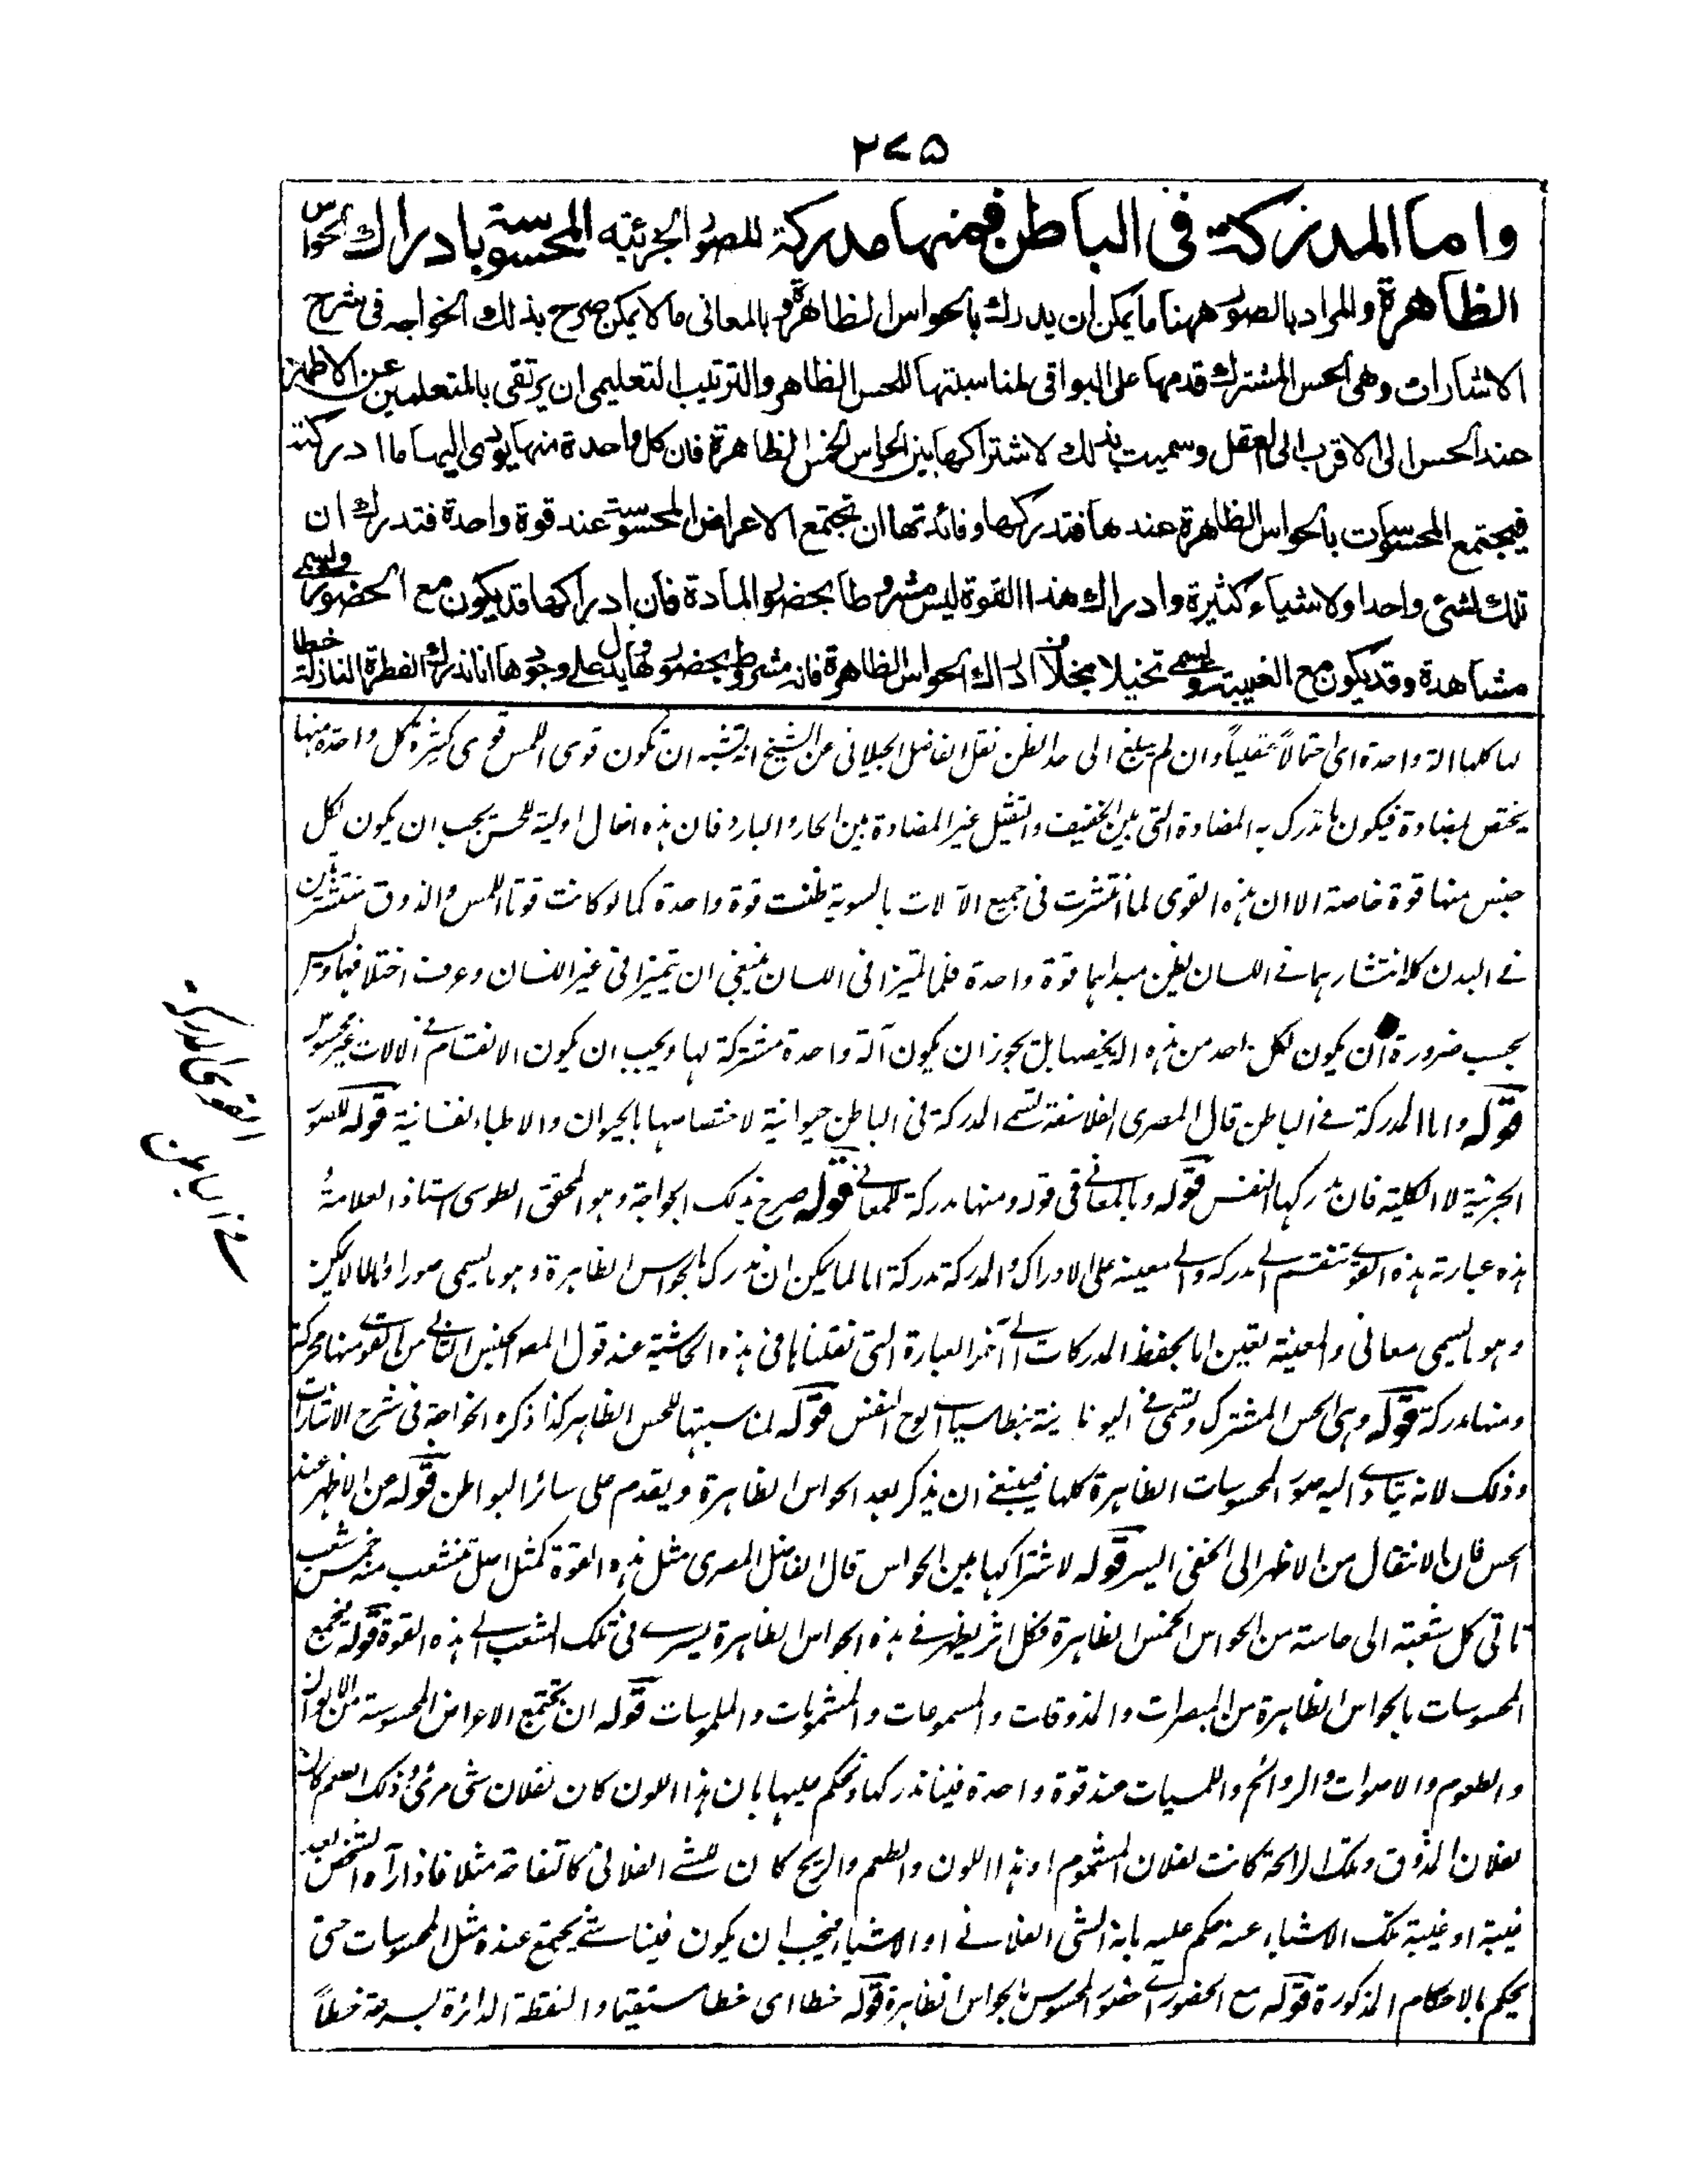 ۲۷۵
واما المدركة فى الباطن فمنها مدركة للصور الجزئية المحسوسة بادراك الحواس
الظاهرة والمراد بالصور ههنا ما يمكن ان يدرك بالحواس الظاهرة وبالمعانى ما لا يمكن صرح بذلك الخواجه فى شرح
الاشارات وهى الحس المشترك قدمها على البواقى لمناسبتها للحس الظاهر والترتيب التعليمى ان يرتقى بالمتعلمين عن الاظهر
عند الحس الى الاقرب الى العقل وسميت بذلك لاشتراكها بين الحواس الخمس الظاهرة فان كل واحدة منها يؤدى اليها ما ادركته
فيجتمع المحسوسات بالحواس الظاهرة عندها فتدركها وفائدتها ان تجتمع الاعراض المحسوسة عند قوة واحدة فتدرك ان
تلك لشئ واحد اولاشياء كثيرة وادراك هذا القوة ليس مشروطا بحضور المادة فان ادراكها قد يكون مع الحضور ويسمى
مشاهدة وقد يكون مع الغيبية ويسمى تخيلا بخلاف ادراك الحواس الظاهرة فانه مشروط بحضورها ويدل على وجودها انا ندرك القطرة النازلة خطا
لها كلها الة واحدة اى احتمالاً عقلياً وان لم يبلغ الى حد الظن نقل الفاضل الجيلانى عن الشيخ انه تشبه ان تكون قوى اللمس قوى كثيرة كل واحدة منها
يختص بمضادة فيكون ما تدرك به المضادة التى بين الخفيف والثقيل غير المضادة بين الحار والبارد فان هذه افعال اولية للحس يجب ان يكون لكل
جنس منها قوة خاصة الا ان هذه القوى لما انتشرت فى جميع الآلات بالسوية ظنت قوة واحدة كما لو كانت قوتا اللمس والذوق منتشرتين
فى البدن كلا نتشارهما فى اللسان لظن مبدأهما قوة واحدة فلما تميزا فى اللسان ينبغى ان يتميزا فى غير اللسان وعرف اختلافهما وليس
يجب ضرورة ان يكون لكل واحد من هذه الة يخصها بل يجوز ان يكون آلة واحدة مشتركة لها ويجب ان يكون الانقسام فى الالات غير محسوس
قوله واما المدركة فى الباطن قال المصرى الفلاسفة تسمى المدركة فى الباطن حيوانية لاختصاصها بالحيوان والاطباء نفسانية قوله للصور
الجزئية لا الكلية فان مدركها النفس قوله وبالمعانى فى قوله ومنها مدركة للمعانى قوله صرح بذلك الخواجة وهو المحقق الطوسى استاذ العلامة
هذه عبارته هذه القوى تنقسم الى مدركة والى معينة على الادراك والمدركة مدركة اما لما يمكن ان تدرك بالحواس الظاهرة وهو ما يسمى صورا واما لما لا يمكن
وهو ما يسمى معانى والمعينة تعين اما بحفظ المدركات الى آخر العبارة التى نقلناها فى هذه الحاشية عند قول المص الجنس الثانى من القوى منها محركة
ومنها مدركة قوله وهى الحس المشترك وتسمى فى اليونانية بنطاسيا اى لوح النفس قوله لمناسبتها للحس الظاهر كذا ذكره الخواجة فى شرح الاشارات
وذلك لانه يتادى اليه صور المحسوسات الظاهرة كلها فينبغى ان يذكر بعد الحواس الظاهرة ويقدم على سائر البواطن قوله عن الاظهر عند
الحس فان الانتقال من الاظهر الى الخفى اليسر قوله لاشتراكها بين الحواس قال الفاضل المصرى مثل هذه القوة كمثل اصل تنشعب منه خمس شعب
تاتى كل شعبة الى حاسة من الحواس الخمس الظاهرة فكل اثر يظهر فى هذه الحواس الظاهرة يسرى فى تلك الشعب الى هذه القوة قوله فيجتمع
المحسوسات بالحواس الظاهرة من المبصرات والمذوقات والمسموعات والمشمومات والملموسات قوله ان يجتمع الاعراض المحسوسة من الالوان
والطعوم والاصوات والروائح واللمسيات عند قوة واحدة فينا تدركها وتحكم عليها بان هذا اللون كان لفلان شئ مرئ وذلك الطعم كان
لفلان المذوق وتلك الرائحة كانت لفلان المشموم او هذا اللون والطعم والريح كان للشئ الفلانى كالتفاحة مثلا فاذا رآه الشخص بعد
غيبة او غيبة تلك الاشياء عنه حكم عليه بانه الشئ الفلانى او الاشياء فيجب ان يكون فينا شئ يجتمع عنده مثل المحسوسات حتى
يحكم بالاحكام المذكورة قوله مع الحضور اى حضور المحسوس بالحواس الظاهرة قوله خطا اى خطا مستقيما والنقطة الدائرة بسرعة خطاً
القوى المدركة
فى الباطن